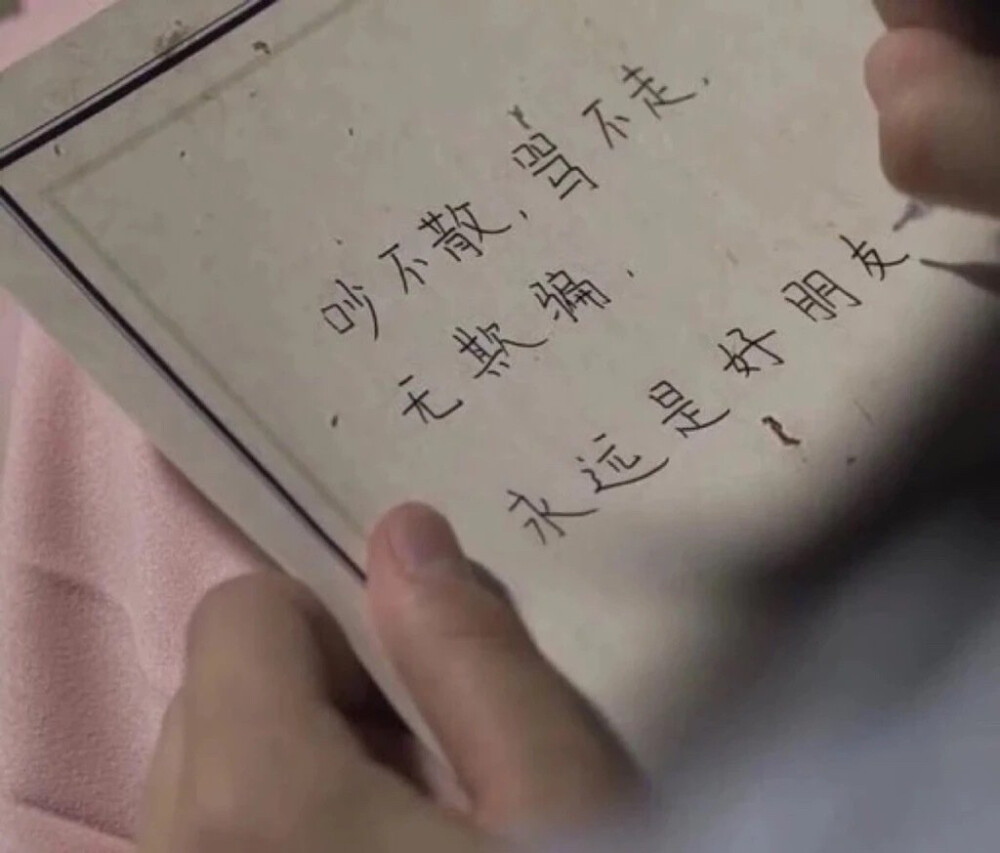 吵不散,骂不走,
无欺骗,
永远是好朋友